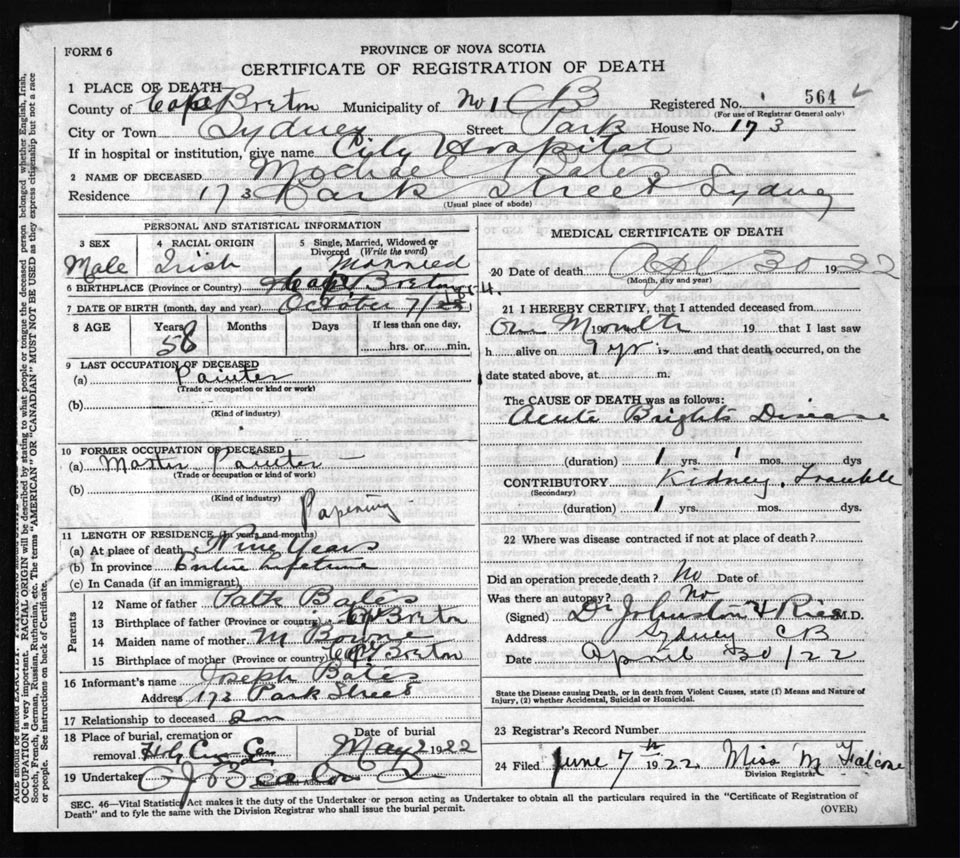 FORM 6
PROVINCE OF NOVA SCOTIA
CERTIFICATE OF REGISTRATION OF DEATH
1 PLACE OF DEATH
County of Cape Breton Municipality of No 1 CB Registered No. 564
(For use of Registrar General only)
City or Town Sydney Street Park House No. 173
If in hospital or institution, give name City Hospital
2 NAME OF DECEASED Michael Bates
Residence 173 Park Street Sydney
(Usual place of abode)
PERSONAL AND STATISTICAL INFORMATION
3 SEX 4 RACIAL ORIGIN 5 Single, Married, Widowed or Divorced (Write the word)
Male Irish Married
6 BIRTHPLACE (Province or Country) Cape Breton
7 DATE OF BIRTH (month, day and year) October 7/
8 AGE Years Months Days If less than one day,
58 hrs. or min.
9 LAST OCCUPATION OF DECEASED
(a) Painter
(Trade or occupation or kind or work)
(b)
(Kind of industry)
10 FORMER OCCUPATION OF DECEASED
(a) Master Painter
(Trade or occupation or kind of work)
(b)
(Kind of industry)
Papering
11 LENGTH OF RESIDENCE (In years and months)
(a) At place of death Nine Years
(b) In province Entire lifetime
(c) In Canada (if an immigrant)
Parents
12 Name of father Patk Bates
13 Birthplace of father (Province or country) Breton
14 Maiden name of mother M
15 Birthplace of mother (Province or country) Cape Breton
16 Informant's name Joseph Bates
Address 173 Park Street
17 Relationship to deceased son
18 Place of burial, cremation or removal Date of burial
May 2 1922
19 Undertaker
Name and Address
MEDICAL CERTIFICATE OF DEATH
20 Date of death Apl 30 1922
(Month, day and year)
21 I HEREBY CERTIFY, that I attended deceased from
19 19 that I last saw
h alive on and that death occurred, on the
date stated above, at m.
The CAUSE OF DEATH was as follows:
Acute Brights Disease
(duration) 1 yrs. 1 mos. dys
CONTRIBUTORY Kidney Trouble
(Secondary)
(duration) 1 yrs. mos. dys.
22 Where was disease contracted if not at place of death?
Did an operation precede death? No Date of
Was there an autopsy? No
(Signed) Dr Johnston M.D.
Address Sydney CB
Date April 30/22
State the Disease causing Death, or in death from Violent Causes, state (1) Means and Nature of
Injury, (2) whether Accidental, Suicidal or Homicidal.
23 Registrar's Record Number
24 Filed June 7th 1922 Miss M
Division Registrar
SEC. 46—Vital Statistics Act makes it the duty of the Undertaker or person acting as Undertaker to obtain all the particulars required in the "Certificate of Registration of
Death" and to fyle the same with the Division Registrar who shall issue the burial permit.
(OVER)
OCCUPATION is very important. RACIAL ORIGIN will be described by stating to what people or tongue the deceased person belonged whether English, Irish,
Scotch, French, German, Russian, Ruthenian, etc. The terms "AMERICAN" OR "CANADIAN" MUST NOT BE USED as they express citizenship but not a race
or people. See instructions on back of Certificate.